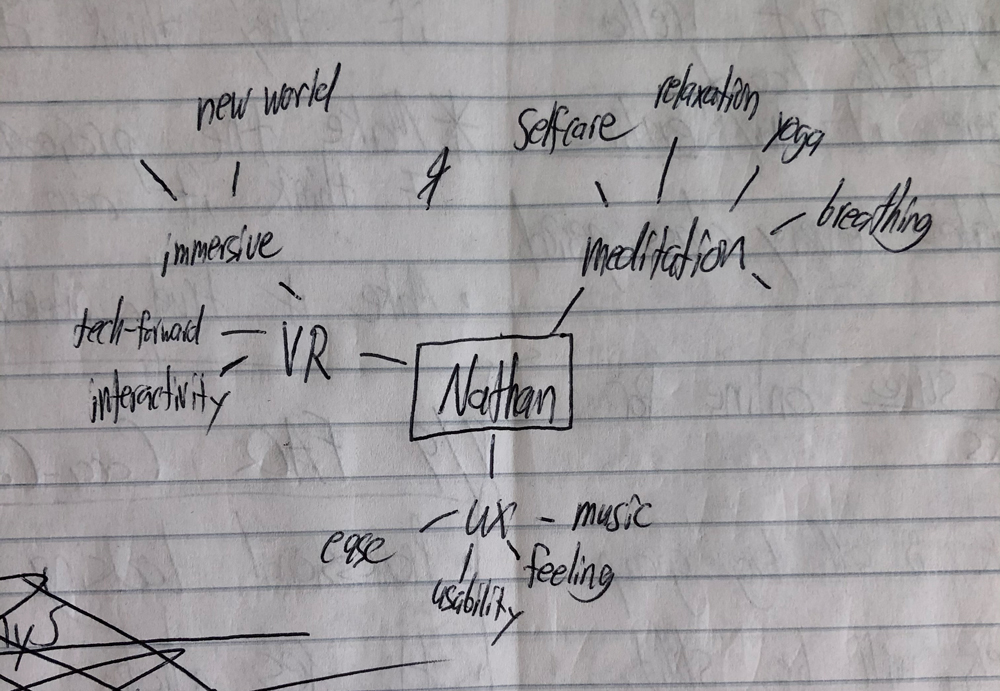 new world
selfcare
relaxation
yoga
breathing
immersive
meditation
tech-forward
VR
interactivity
Nathan
ux
music
ease
feeling
usability